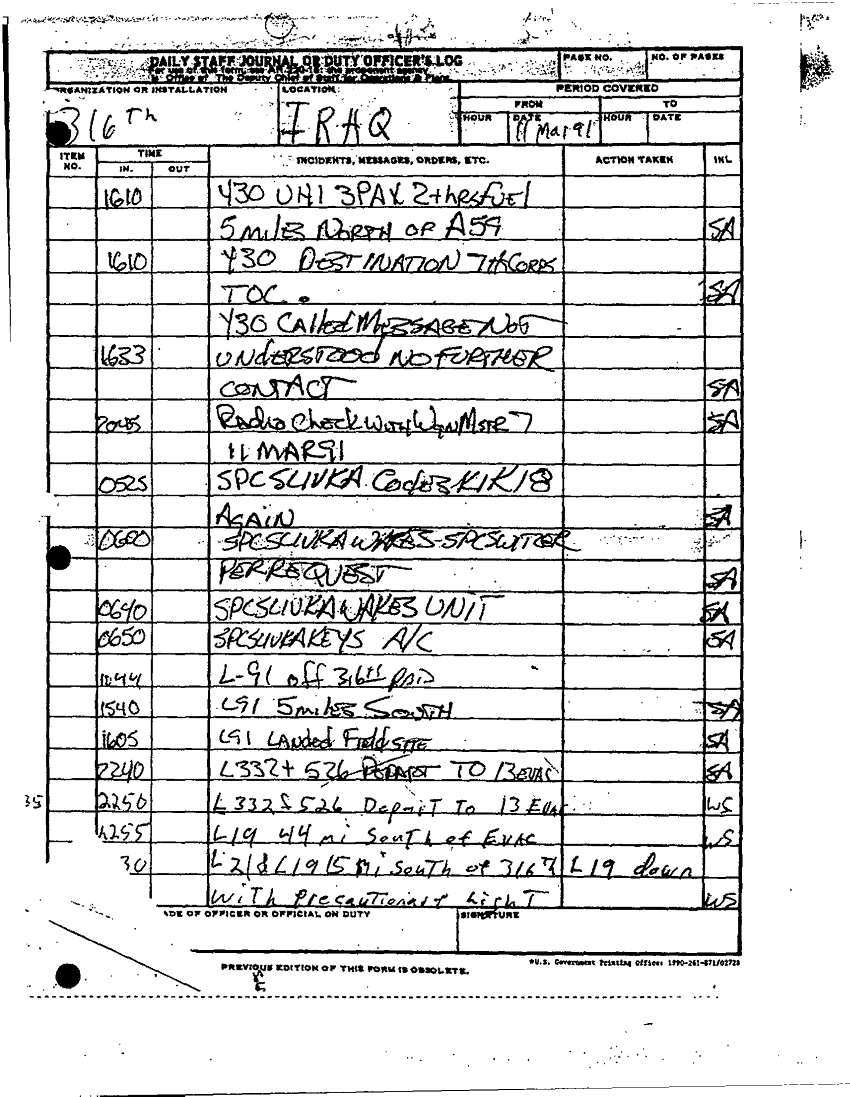 DAILY STAFF JOURNAL OR DUTY OFFICER'S LOG
PAGE NO.
NO. OF PAGES
ORGANIZATION OR INSTALLATION
LOCATION
PERIOD COVERED
316Th
IRAQ
FROM
TO
HOUR
DATE
HOUR
DATE
11 Mar 91
ITEM NO.
TIME
INCIDENTS, MESSAGES, ORDERS, ETC.
ACTION TAKEN
INL
IN.
OUT
1610 Y30 UH1 3PAX 2+hrs fuel
5 miles North of A59 SA
1610 Y30 DESTINATION 7thCorps
TOC. SA
Y30 Called Message Not
1633 UNDERSTOOD NO FURTHER
CONTACT SA
2045 Radio Check With Mstr 7 SA
11 MAR91
0525 SPC SLIVKA Codes KIK18
AGAIN SA
0600 SPC SLIVKA WAKES SPC
PER REQUEST SA
0640 SPC SLIVKA WAKES UNIT SA
0650 SPC SLIVKA KEYS A/C SA
L-91 off 316th PAD
1540 L91 5miles South SA
1605 L91 LANDED Field SITE SA
2240 L332+ 526 Depart TO 13EVAC SA
35 2250 L332 & 526 Depart To 13 Evac WS
2255 L19 44 mi South of EVAC WS
30 L21 & L19 15 mi South of 316th L19 down
with Precautionary Light WS
ADE OF OFFICER OR OFFICIAL ON DUTY
SIGNATURE
PREVIOUS EDITION OF THIS FORM IS OBSOLETE.
*U.S. Government Printing Office: 1990-261-871/02728